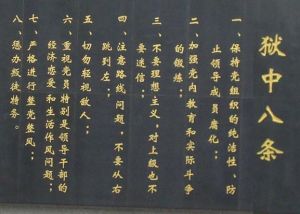 狱中八条
一、保持党组织的纯洁性、防
止领导成员腐化；
二、加强党内教育和实际斗争
的锻炼；
三、不要理想主义，对上级也不
要迷信；
四、注意路线问题，不要从右
跳到左；
五、切勿轻视敌人；
六、重视党员特别是领导干部的
经济恋爱和生活作风问题；
七、严格进行整党整风；
八、惩办叛徒特务。